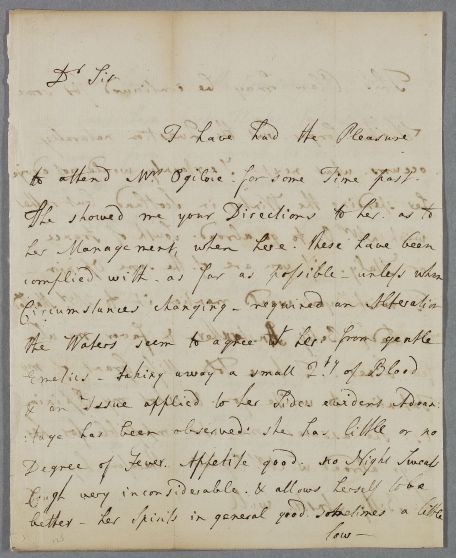 Dr Sir
I have had the Pleasure
to attend Mrs Ogilvie. for some Time past.
She showed me your Directions to her. as to
her Management, when here. these have been
complied with - as far as possible - unless when
Circumstances changing - required an Alteration
the Waters seem to agree wt her. from gentle
Emetics - taking away a small Qty. of Blood
& an Issue applied to her Side. evident Advan:
:tage has been observed: she has little or no
Degree of Fever. Appetite good. no Night Sweats
Cough very inconsiderable. & allows herself to be
better - her Spirits in general good. sometimes a little
low -